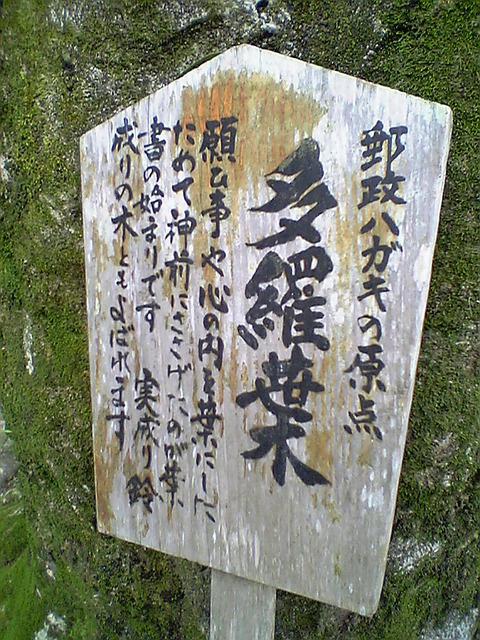 郵政ハガキの原点
多羅葉
願ひ事や心の内を葉にした
ためて神前にささげたのが葉
書の始まりです 実成り 鈴
成りの木ともよばれます